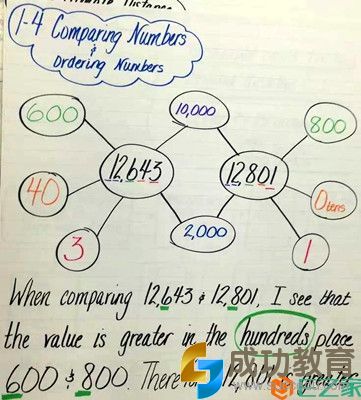 1-4 Comparing Numbers
&
Ordering Numbers
600
10,000
800
12,643
12,801
40
0 tens
3
2,000
1
When comparing 12,643 & 12,801, I see that
the value is greater in the hundreds place
600 & 800. There 12,801 is greater
成功教育